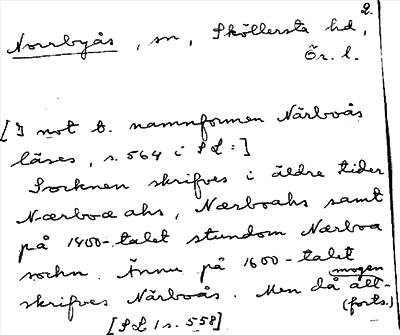 2.
Norrbyås, sn, Sköllersta hd,
Ör. l.
[I not t. namnformen Närboås
läses, s. 564 i SL:]
Socknen skrifves i äldre tider
Nærboæ ahs, Nærboahs samt
på 1400-talet stundom Nærboa
sochn. Ännu på 1600-talet
skrifves Närboås. Men då all-
mogen
(forts.)
[SL 1 s. 558]